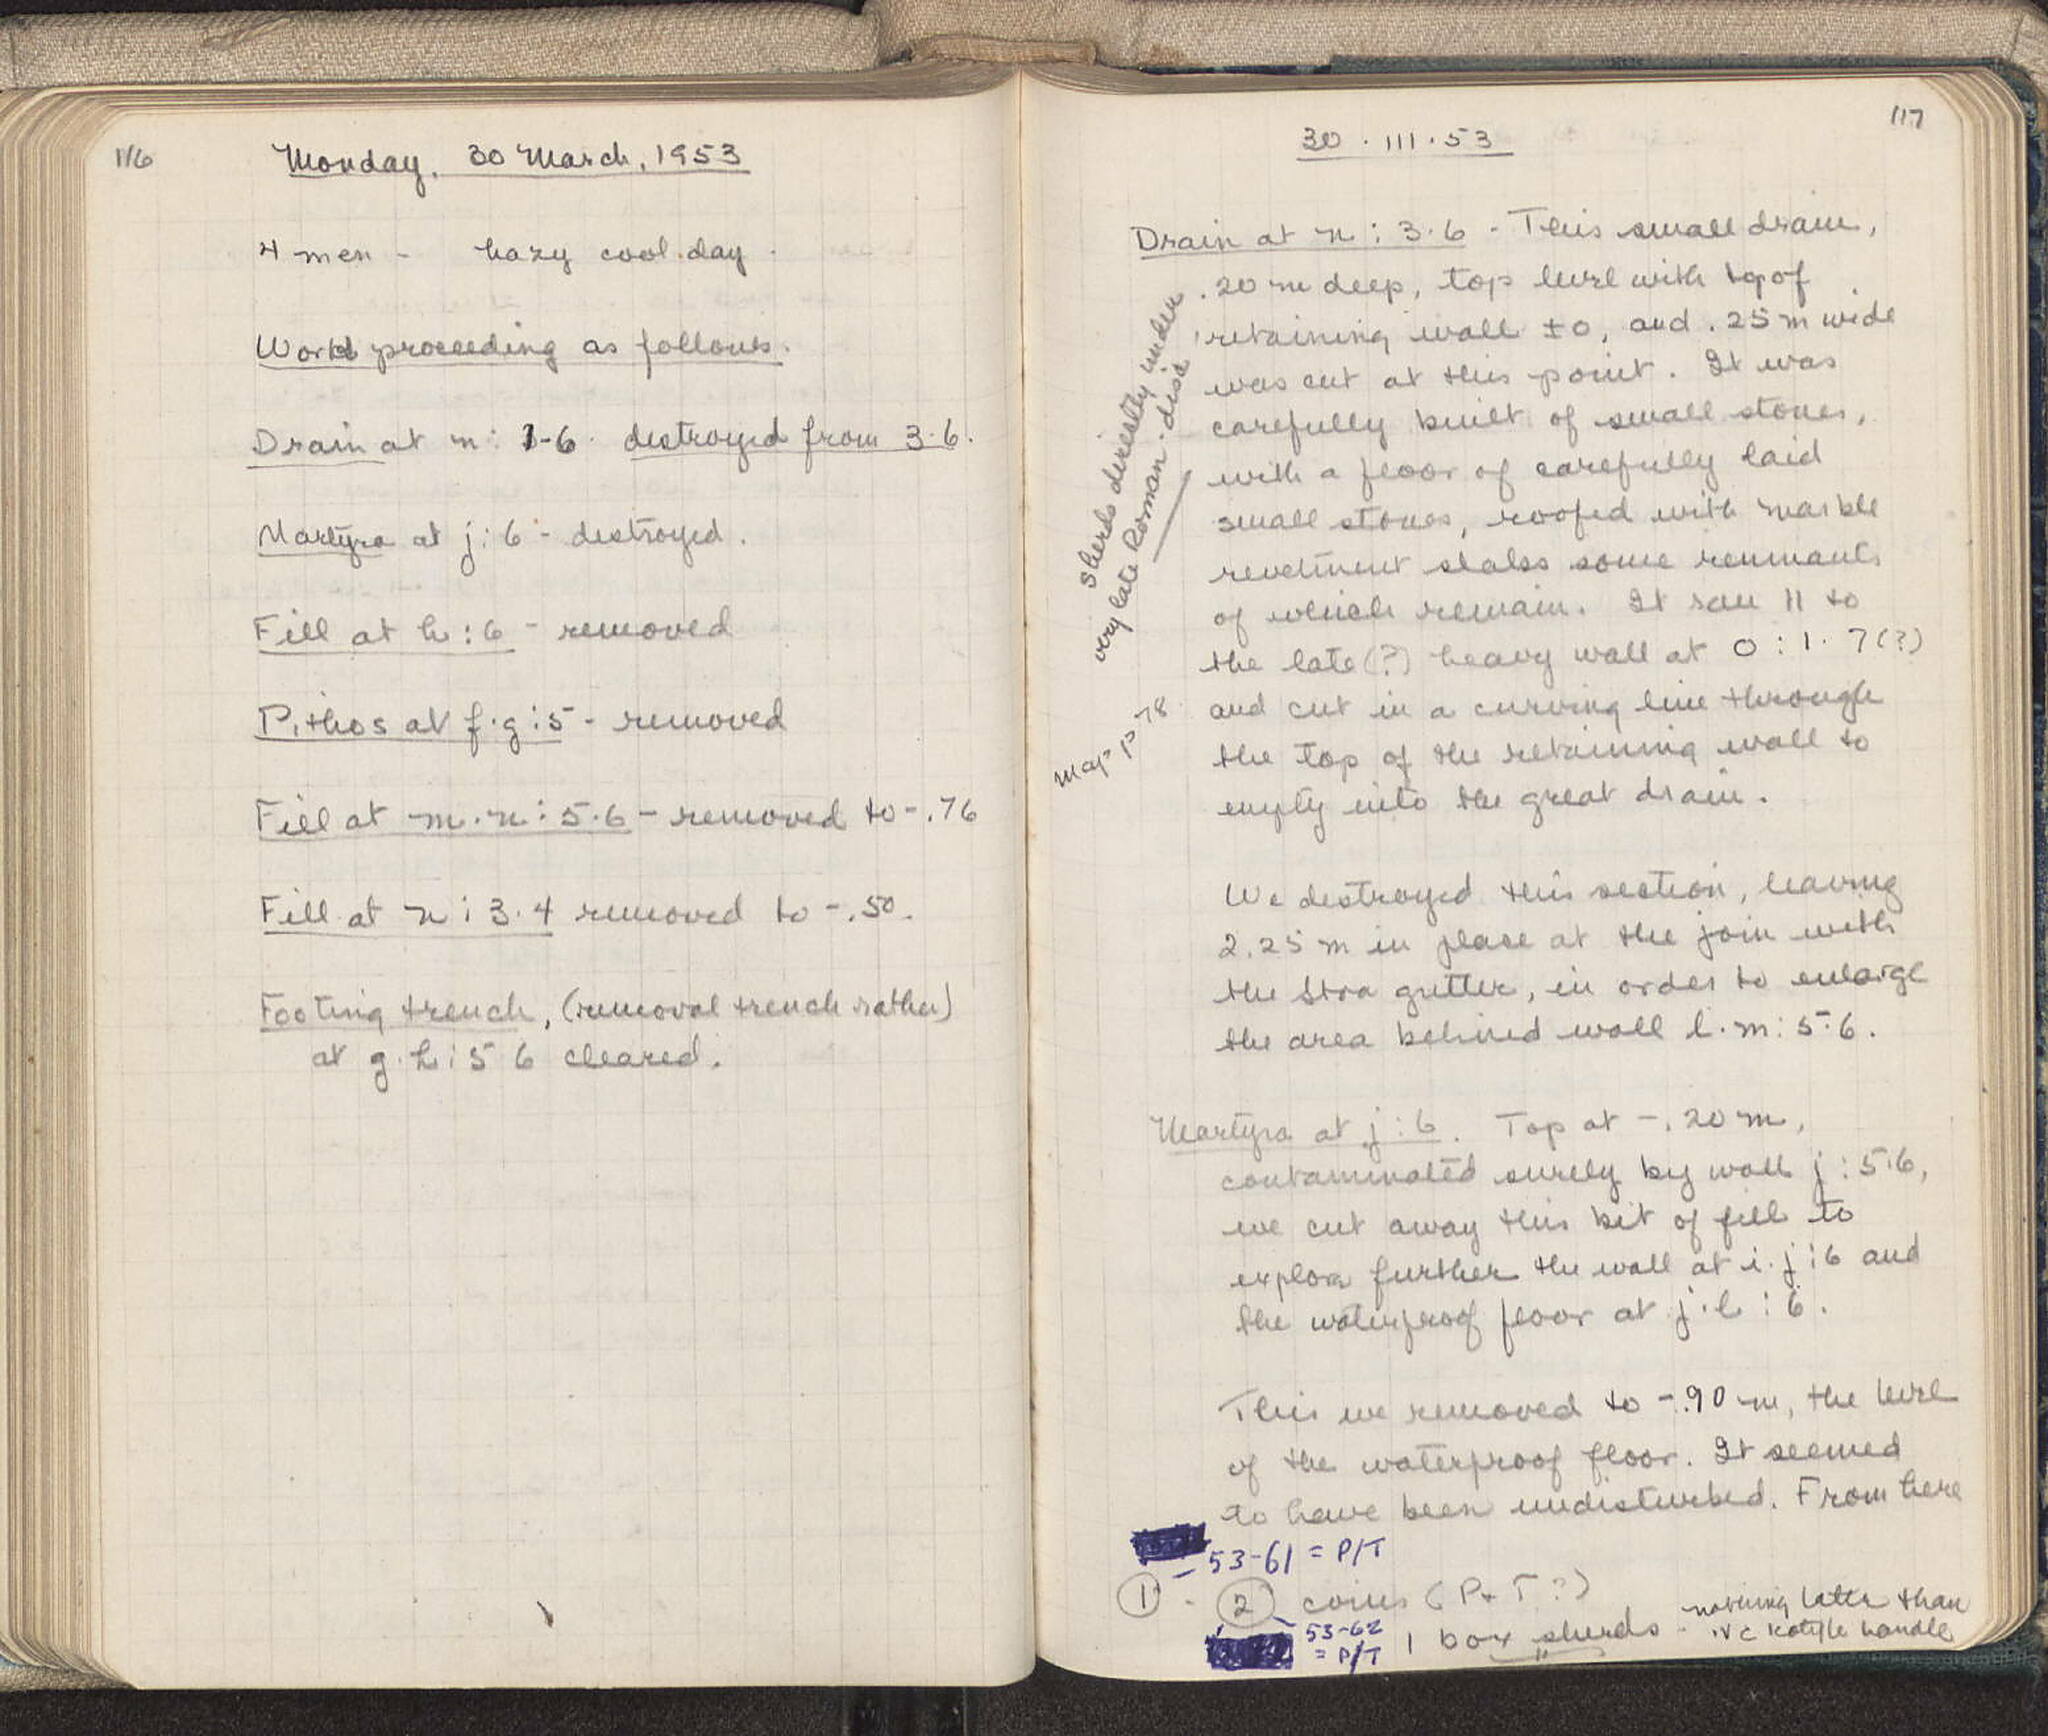 116
Monday, 30 March, 1953
4 men - hazy cool day.
Work proceeding as follows.
Drain at n: 3-6. destroyed from 3.6.
Martyra at j:6 - destroyed.
Fill at h:6 - removed
Pithos at f.g:5 - removed
Fill at m.n:5.6 - removed to -.76
Fill at n:3.4 removed to -.50.
Footing trench, (removal trench rather)
at g.h:5 6 cleared.
117
30.III.53
Drain at n:3.6 - This small drain,
.20 m deep, top level with top of
retaining wall ±0, and .25 m wide
was cut at this point. It was
carefully built of small stones,
with a floor of carefully laid
small stones, roofed with marble
revetment slabs some remnants
of which remain. It ran || to
the late(?) heavy wall at o:1.7(?)
and cut in a curving line through
the top of the retaining wall to
empty into the great drain.
sherds directly under
very late Roman - disc
map p 78
We destroyed this section, leaving
2.25 m in place at the join with
the Stoa gutter, in order to enlarge
the area behind wall l.m:5.6.
Martyra at j:6. Top at -.20 m,
contaminated surely by wall j:5.6,
we cut away this bit of fill to
explore further the wall at i.j:6 and
the waterproof floor at j.h:6.
This we removed to -.90 m, the level
of the waterproof floor. It seemed
to have been undisturbed. From here
- 53-61 = P/T
1 - 2 coins (P+T?)
53-62
= P/T
1 box sherds - nothing later than
IV c kotyle handle